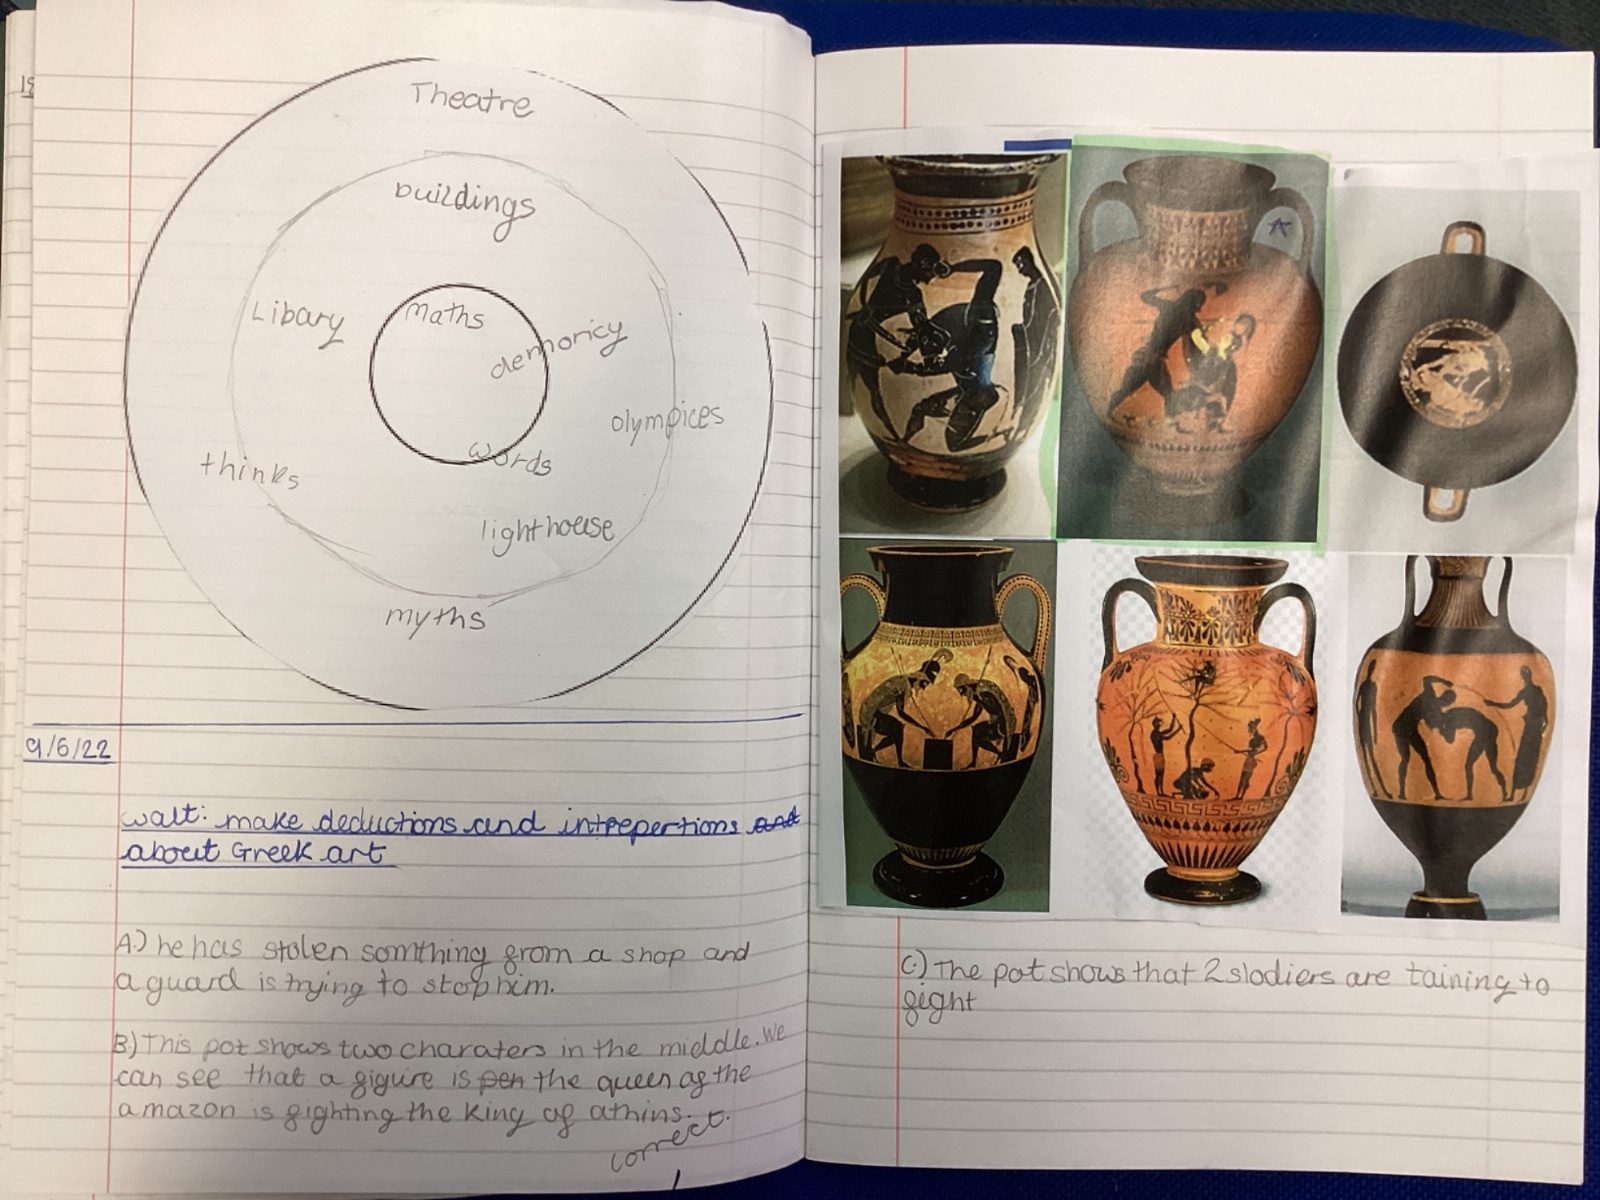 Theatre
buildings
Libary
maths
demoricy
olympices
words
thinks
lighthouse
myths
9/6/22
walt: make deductions and intrepertions and
about Greek art
A.) he has stolen somthing from a shop and
a guard is trying to stop him.
B.) This pot shows two charaters in the middle. We
can see that a figuire is pen the queen of the
amazon is fighting the king of athins.
correct.
C.) The pot shows that 2 slodiers are taining to
fight